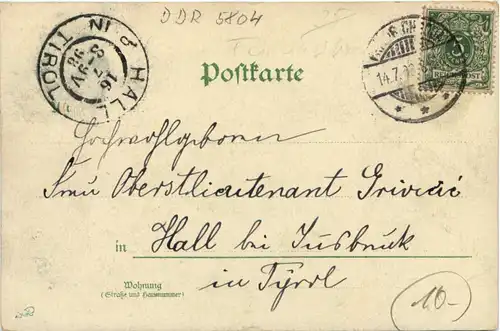 DDR 5804
HALL IN TIROL
16
7
98
14.7.98
REICHSPOST
Postkarte
Hochwohlgeboren
Frau Oberstlieutenant Grivičić
in Hall bei Insbruck
in Tyrol
Wohnung
(Straße und Hausnummer)
10.-